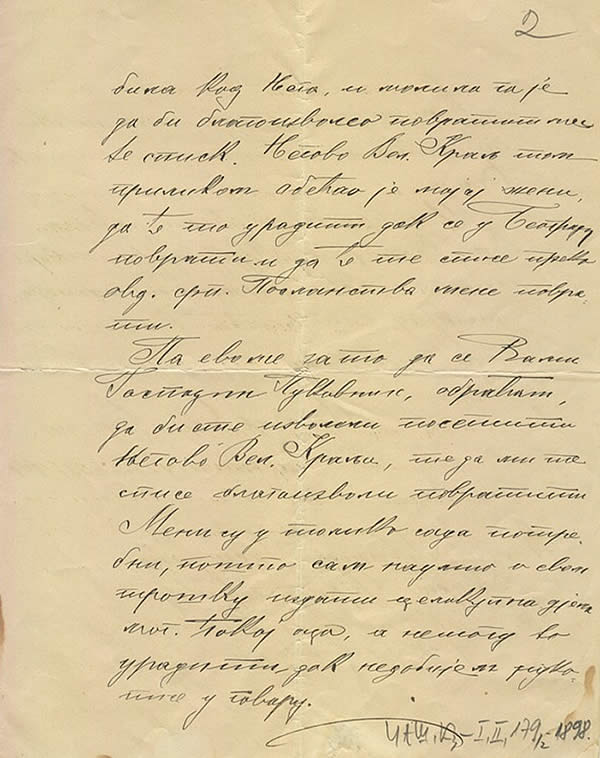 2
била код Њега, и молила га је
да би благоизволео повратити ме
те списк. Његово Вел. Краљ том
приликом обећао је мојој жени,
да ће то урадити док се у Београд
поврати и да ће те списе преко
овд. срп. Посланства мене повра-
ти.
Па ево ме зато да се Вами
Господин Пуковник, обраћам,
да бисте изволели посетити
Његово Вел. Краља, те да ми те
списе благоизволи повратити
Мени су у толико сада потре-
бни, пошто сам наумио о свом
трошку издати целокупна дјела
мог. Покој оца, а немогу то
урадити, док недобијем руко-
писе у говору.
I, II, 179/2 - 1898.